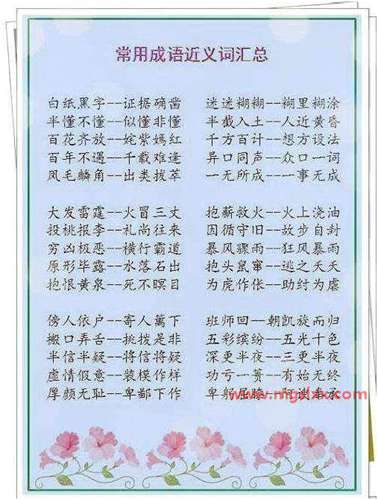 常用成语近义词汇总
白纸黑字--证据确凿 迷迷糊糊--糊里糊涂
半懂不懂--似懂非懂 半截入土--人近黄昏
百花齐放--姹紫嫣红 千方百计--想方设法
百年不遇--千载难逢 异口同声--众口一词
凤毛麟角--出类拔萃 一无所成--一事无成
大发雷霆--火冒三丈 抱薪救火--火上浇油
投桃报李--礼尚往来 因循守旧--故步自封
穷凶极恶--横行霸道 暴风骤雨--狂风暴雨
原形毕露--水落石出 抱头鼠窜--逃之夭夭
抱恨黄泉--死不瞑目 为虎作伥--助纣为虐
傍人依户--寄人篱下 班师回--朝凯旋而归
搬口弄舌--挑拨是非 五彩缤纷--五光十色
半信半疑--将信将疑 深更半夜--三更半夜
虚情假意--装模作样 功亏一篑--有始无终
厚颜无耻--卑鄙下作 卑躬屈膝--